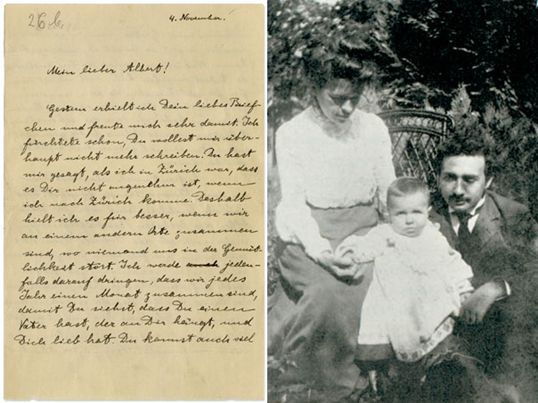 26
4. November.
Mein lieber Albert!
Gestern erhielt ich Dein liebes Brief-
chen und freute mich sehr damit. Ich
fürchtete schon, Du wollest mir über-
haupt nicht mehr schreiben. Du hast
mir gesagt, als ich in Zürich war, dass
es Dir nicht angenehm ist, wenn
ich nach Zürich komme. Deshalb
hielt ich es für besser, wenn wir
an einem andern Orte zusammen
sind, wo niemand uns in der Gemüt-
lichkeit stört. Ich werde auch jeden-
falls darauf dringen, dass wir jedes
Jahr einen Monat zusammen sind,
damit Du siehst, dass Du einen
Vater hast, der an Dir hängt, und
Dich lieb hat. Du kannst auch viel